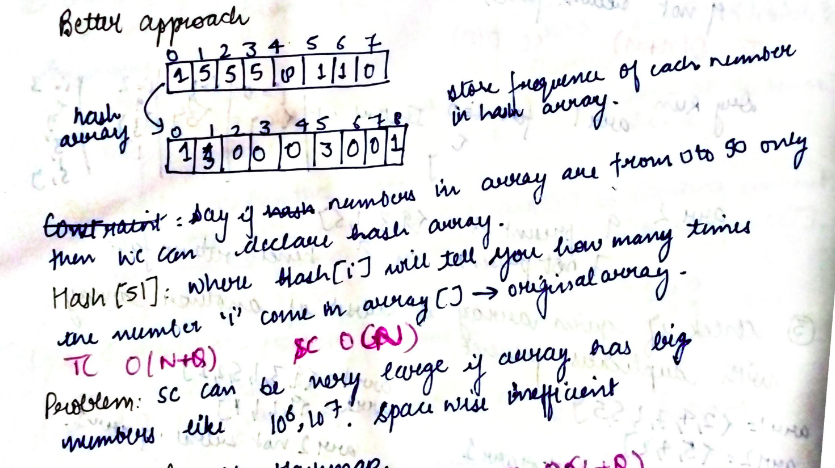 Better approach
0 1 2 3 4 5 6 7
1 5 5 5 0 1 1 0
hash array
store frequence of each number
in hash array.
0 1 2 3 4 5 6 7 8
1 3 0 0 0 3 0 0 1
Constraint : Say if hash numbers in array are from 0 to 50 only
then we can declare hash array.
Hash [51] : where Hash[i] will tell you how many times
the number "i" come in array [] → original array.
TC O(N+Q) SC O(N)
Problem: SC can be very large if array has big
numbers like 10⁶, 10⁷. Space wise inefficient